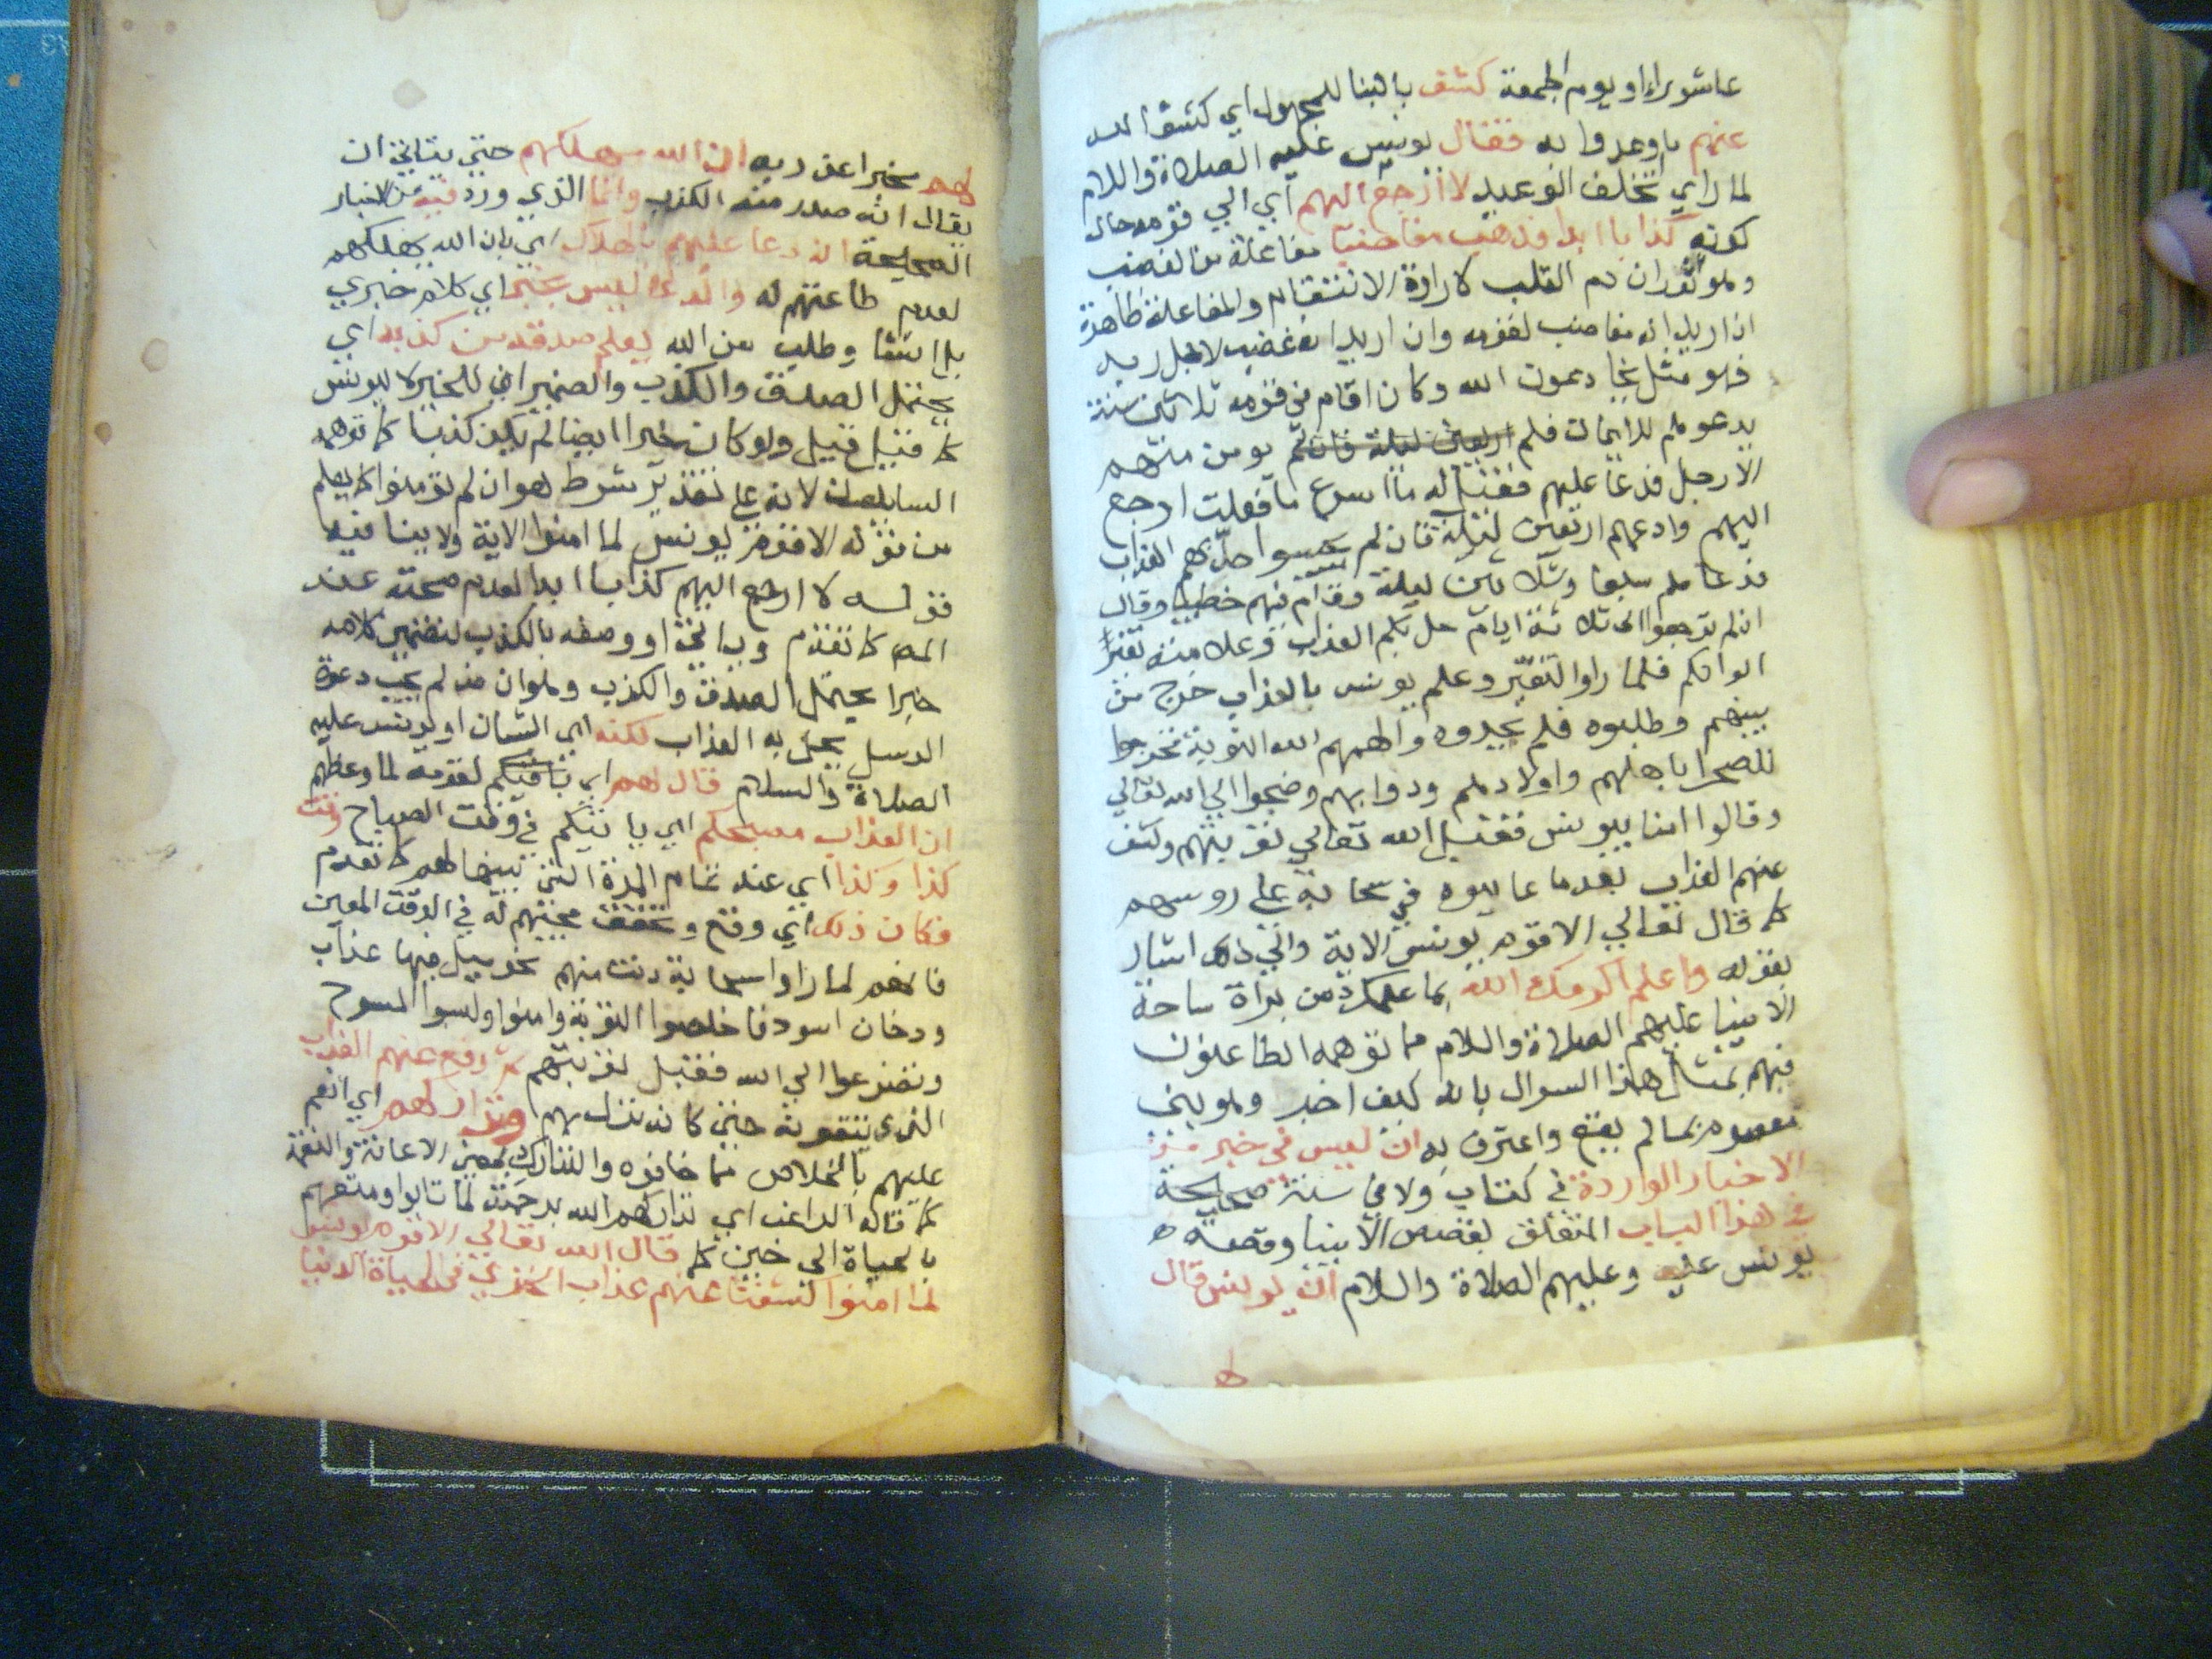 عاشوراء او يوم الجمعة كشف بالبنا للمجهول اي كشف الله
عنهم ما وعدوا به فقال يونس عليه الصلاة والسلام
لما راي تخلف الوعيد لا ارجع اليهم اي الي قومه حال
كونه كذابا ابدا فذهب مغاضبا مفاعلة من الغضب
وهو ثوران دم القلب لارادة الانتقام والمفاعلة ظاهرة
ان اريد انه مغاضب لقومه وان اريد انه غضب لاجل ربه
فهو مثل يخادعون الله وكان اقام في قومه ثلاثين سنة
يدعوهم للايمان فلم يومن منهم
الا رجل فدعا عليهم فقيل له ما اسرع ما فعلت ارجع
اليهم وادعهم اربعين ليلة فان لم حل بهم العذاب
فدعاهم سبعا وثلاثين ليلة وقام فيهم خطيبا وقال
ان لم ترجعوا الى ثلاثة ايام حل بكم العذاب وعلامته تغير
الوانكم فلما راوا التغير وعلم يونس بالعذاب خرج من
بينهم وطلبوه فلم يجدوه والهمهم الله التوبة فخرجوا
للصحرا باهلهم واولادهم ودوابهم وضجوا الي الله تعالي
وقالوا امنا بيونس فقبل الله تعالي توبتهم وكشف
عنهم العذاب بعدما عاينوه في سحابة على روسهم
كما قال تعالي الا قوم يونس الاية والي ذلك اشار
بقوله واعلم اكرمك الله بما علمك من براة ساحة
الانبيا عليهم الصلاة والسلام مما توهمه الطاعنون
فيهم بمثل هذا السوال بانه كيف اخبر وهو نبي
معصوم بما لم يقع واعترف به ان ليس في خبر من
الاخبار الواردة في كتاب ولا في سنة صحيحة
في هذا الباب المتعلق بقصص الانبيا وقصة
يونس عليه وعليهم الصلاة والسلام ان يونس قال
لهم مخبرا عن ربه ان الله مهلكهم حتي يتاتي ان
يقال انه صدر منه الكذب وانما الذي ورد فيه من الاخبار
الصحيحة انه دعا عليهم بالهلاك اي بان الله يهلكهم
لعدم طاعتهم له والدعا ليس بخبر اي كلام خبري
بل انشا وطلب من الله ليعلم صدقه من كذبه اي
يحتمل الصدق والكذب والضميران للخبر لا ليونس
كما قيل ولو كان خبرا ايضا لم يكن كذبا كما توهمه
السايل لانه على تقدير شرط هو ان لم تومنوا كما يعلم
من قوله الا قوم يونس لما امنوا الاية ولا ينافيه
قوله لا ارجع اليهم كذابا ابدا لعدم صحته عند
المص كما تقدم او وصفه بالكذب لتضمن كلامه
خبرا يحتمل الصدق والكذب وهو ان من لم يجب دعوة
الرسل يحل به العذاب لكنه اي الشان او يونس عليه
الصلاة والسلام قال لهم لقومه لما وعظهم
ان العذاب مصبحكم اي ياتيكم في وقت الصباح وقت
كذا وكذا اي عند تمام المدة التي بينها لهم كما تقدم
فكان ذلك اي وقع وتحقق مجيئهم له في الوقت المعين
فانهم لما راوا سحابة دنت منهم نحو ميل فيها عذاب
ودخان اسود فاخلصوا التوبة وامنوا ولبسوا المسوح
وتضرعوا الي الله فقبل توبتهم ثم رفع عنهم العذاب
الذي حتي كاد ينزل بهم وتداركهم اي انعم
عليهم بالخلاص مما خافوه والتدارك بمعني الاعانة والنعمة
كما قاله الراغب اي تداركهم الله برحمته لما تابوا ومتعهم
بالحياة الى حين كما قال الله تعالي الا قوم يونس
لما امنوا كشفنا عنهم عذاب الخزي في الحياة الدنيا